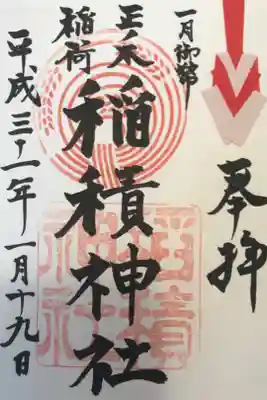 奉拝
一月御
正ノ木
稲荷
稲積神社
平成三十一年一月十九日
稲積神社